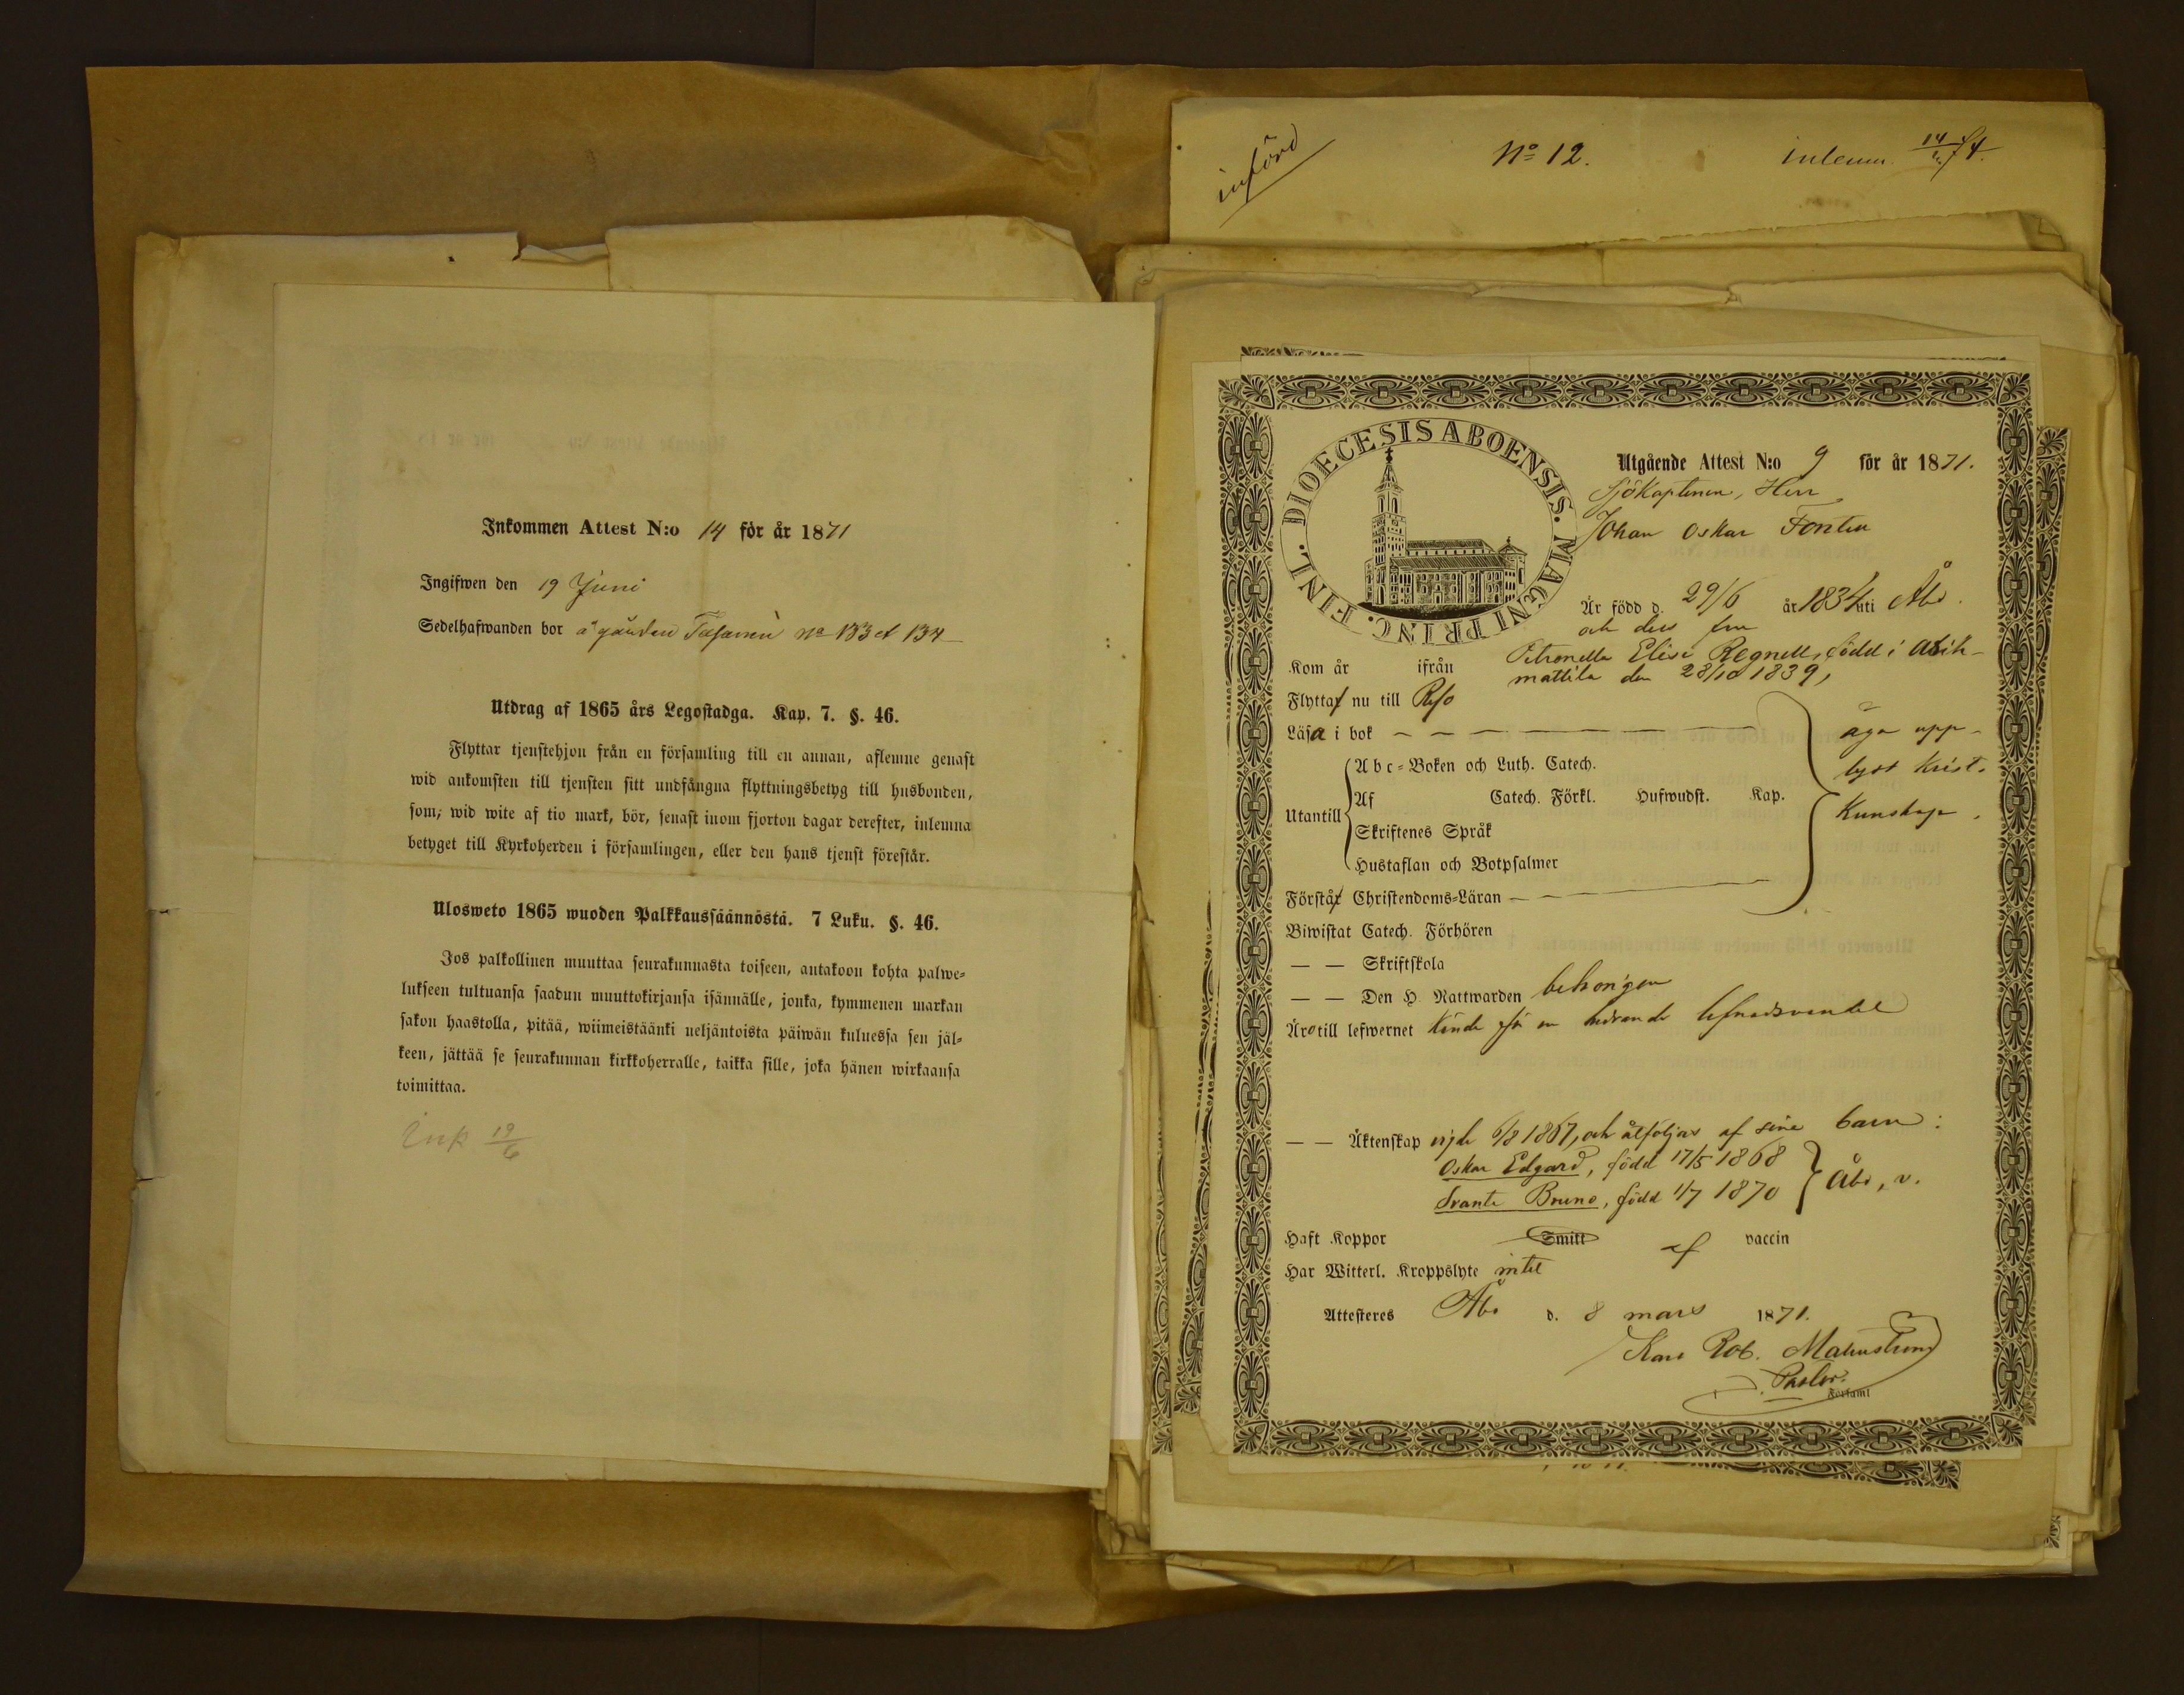 Inkommen Attest N:o 14 för år 1871
Ingifwen den 19 Juni
Sedelhafwanden bor å gården No 133 et 134
Utdrag af 1865 års Legostadga. Kap. 7. §. 46.
Flyttar tjenstehjon från en församling till en annan, aflemne genast
wid ankomsten till tjensten sitt undfångna flyttningsbetyg till husbonden,
som, wid wite af tio mark, bör, senast inom fjorton dagar derefter, inlemna
betyget till Kyrkoherden i församlingen, eller den hans tjenst förestår.
Ulosweto 1865 wuoden Palkkaussäännöstä. 7 Luku. §. 46.
Jos palkollinen muuttaa seurakunnasta toiseen, antakoon kohta palwe-
lukseen tultuansa saadun muuttokirjansa isännälle, jonka, kymmenen markan
sakon haastolla, pitää, wiimeistäänki neljäntoista päiwän kuluessa sen jäl-
keen, jättää se seurakunnan kirkkoherralle, taikka sille, joka hänen wirkaansa
toimittaa.
Ink 19/6
införd
No 12.
inlemn. 14/74.
DIOECESIS ABOENSIS. MAGNI PRINC. FINL.
Utgående Attest N:o 9 för år 1871.
Sjökaptenen, Herr
Johan Oskar Fontin
Är född d. 29/6 år 1834 uti Åbo.
och dess fru
Petronella Elise Regnell, född i
Kom år ifrån
mattila den 28/10 1839,
Flyttar nu till Reso
Läsa i bok
äga upp-
lyst Krist.
Kunskap.
Utantill
Abc-Boken och Luth. Catech.
Af Catech. Förkl. Hufwudst. Kap.
Skriftenes Språk
Hustaflan och Botpsalmer
Förstår Christendoms-Läran
Biwistat Catech. Förhören
— — Skriftskola
— — Den H. Nattwarden behörigen
Äro till lefwernet kände för en hedrande lefnadsvandel
— — Äktenskap 6/8 1867, och åtföljas af sine barn:
Oskar Edgard, född 17/5 1868
Svante Bruno, född 1/7 1870
Åbo, v.
Haft Koppor Smitt af vaccin
Har Witterl. Kroppslyte intet
Attesteres Åbo d. 8 mars 1871.
Karl Rob. Malmström
Pastor.
Församl